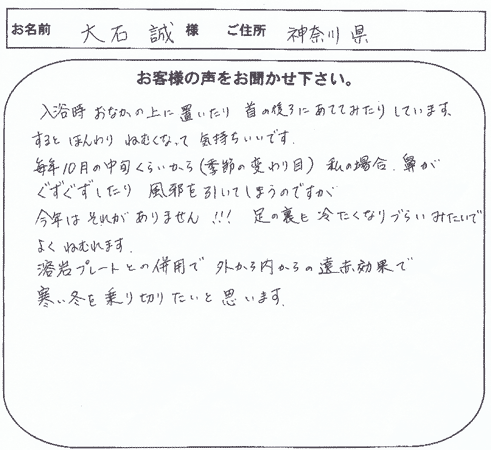 お名前 大石 誠 様 ご住所 神奈川県
お客様の声をお聞かせ下さい。
入浴時 おなかの上に置いたり 首の後ろにあててみたりしています、
すると ほんわり ねむくなって 気持ちいいです.
毎年10月の中旬くらいから(季節の変わり目) 私の場合、鼻が
ぐずぐずしたり 風邪を引いてしまうのですが
今年は それがありません!!! 足の裏も 冷たくなりづらいみたいで
よく ねむれます.
溶岩プレートとの併用で 外から内からの遠赤効果で
寒い冬を 乗り切りたいと 思います.